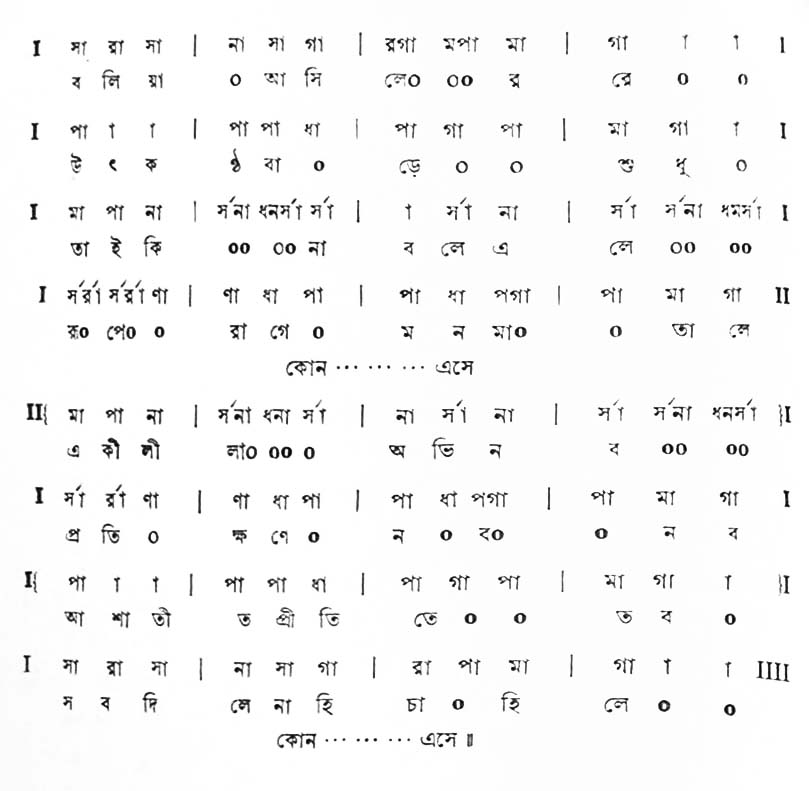 I সা রা সা | না সা গা | রগা মপা মা | গা া া I
ব লি য়া ০ আ সি লে০ ০০ র রে ০ ০
I পা া া | পা পা ধা | পা গা পা | মা গা া I
উ ৎ ক ণ্ঠ বা ০ ড়ে ০ ০ শু ধু ০
I মা পা না | র্সনা ধনর্সা র্সা | া র্সা না | র্সা র্সনা ধমর্সা I
তা ই কি ০০ ০০ না ব লে এ লে ০০ ০০
I র্সর্রা র্সর্রা ণা | ণা ধা পা | পা ধা পগা | পা মা গা II
রূ০ পে০ ০ রা গে ০ ম ন মা০ ০ তা লে
কোন ··· ··· ··· এসে
II{ মা পা না | র্সনা ধনা র্সা | না র্সা না | র্সা র্সনা ধনর্সা }I
এ কী লী লা০ ০০ ০ অ ভি ন ব ০০ ০০
I র্সা র্রা ণা | ণা ধা পা | পা ধা পগা | পা মা গা I
প্র তি ০ ক্ষ ণে ০ ন ০ ব০ ০ ন ব
I{ পা া া | পা পা ধা | পা গা পা | মা গা া }I
আ শা তী ত প্রী তি তে ০ ০ ত ব ০
I সা রা সা | না সা গা | রা পা মা | গা া া IIII
স ব দি লে না হি চা ০ হি লে ০ ০
কোন ··· ··· ··· এসে ॥